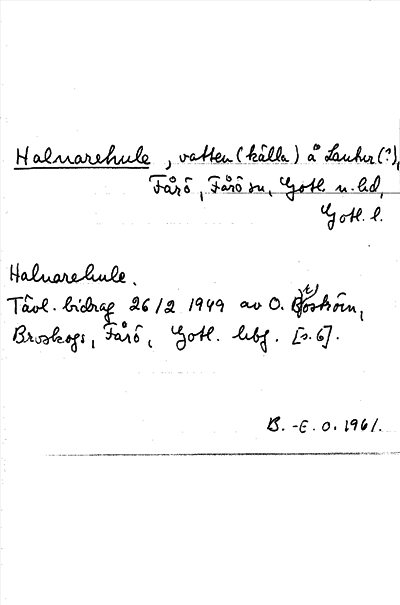 Halnarehule, vatten (källa) å Lauter (?),
Fårö, Fårö sn, Gotl. n. hd,
Gotl. l.
Halnarehule.
Tävl. bidrag 26/2 1949 av O. Boström,
Broskogs, Fårö, Gotl. [s. 6].
B.-E. O. 1961.